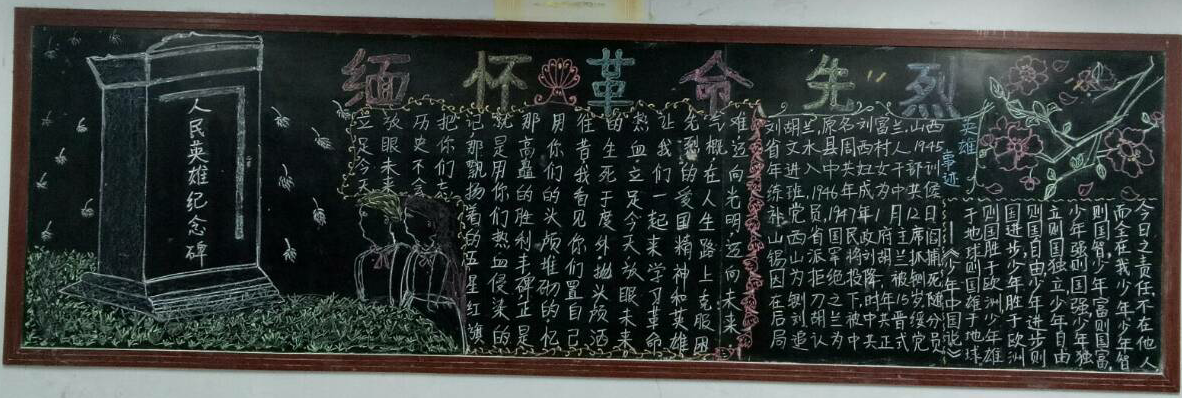 缅怀革命先烈
人民英雄纪念碑
立足今天
放眼未来
历史不会
把你们忘
记那飘扬着的五星红旗
就是用你们热血侵染的
那高矗的胜利丰碑正是
用你们的头颅堆砌的忆
往昔我看见你们置自己
的生死于度外.抛头颅洒
热血.立足今天放眼未来
让我们一起来学习革命
先烈的爱国精神和英雄
气概.在人生路上克服困
难迈向光明.迈向未来.
英雄事迹
刘胡兰,原名刘富兰,山西
省文水县周西村人1945
年进入中共妇女干
练班,1946年成为中共候
补党员,1947年1月12日
山西省国民政府主席阎
锡山派军将刘胡兰抓捕
因为拒绝投降被铡死
在铡刀之下时年15岁随
后刘胡兰被中共晋绥分
局追认为中共正式党员
今日之责任,不在他人
而全在我少年.少年智
则国智,少年富则国富,
少年强则国强少年独
立则国独立少年自由
则国自由少年进步则
国进步,少年胜于欧洲
则国胜于欧洲少年雄
于地球则国雄于地球
——《少年中国说》